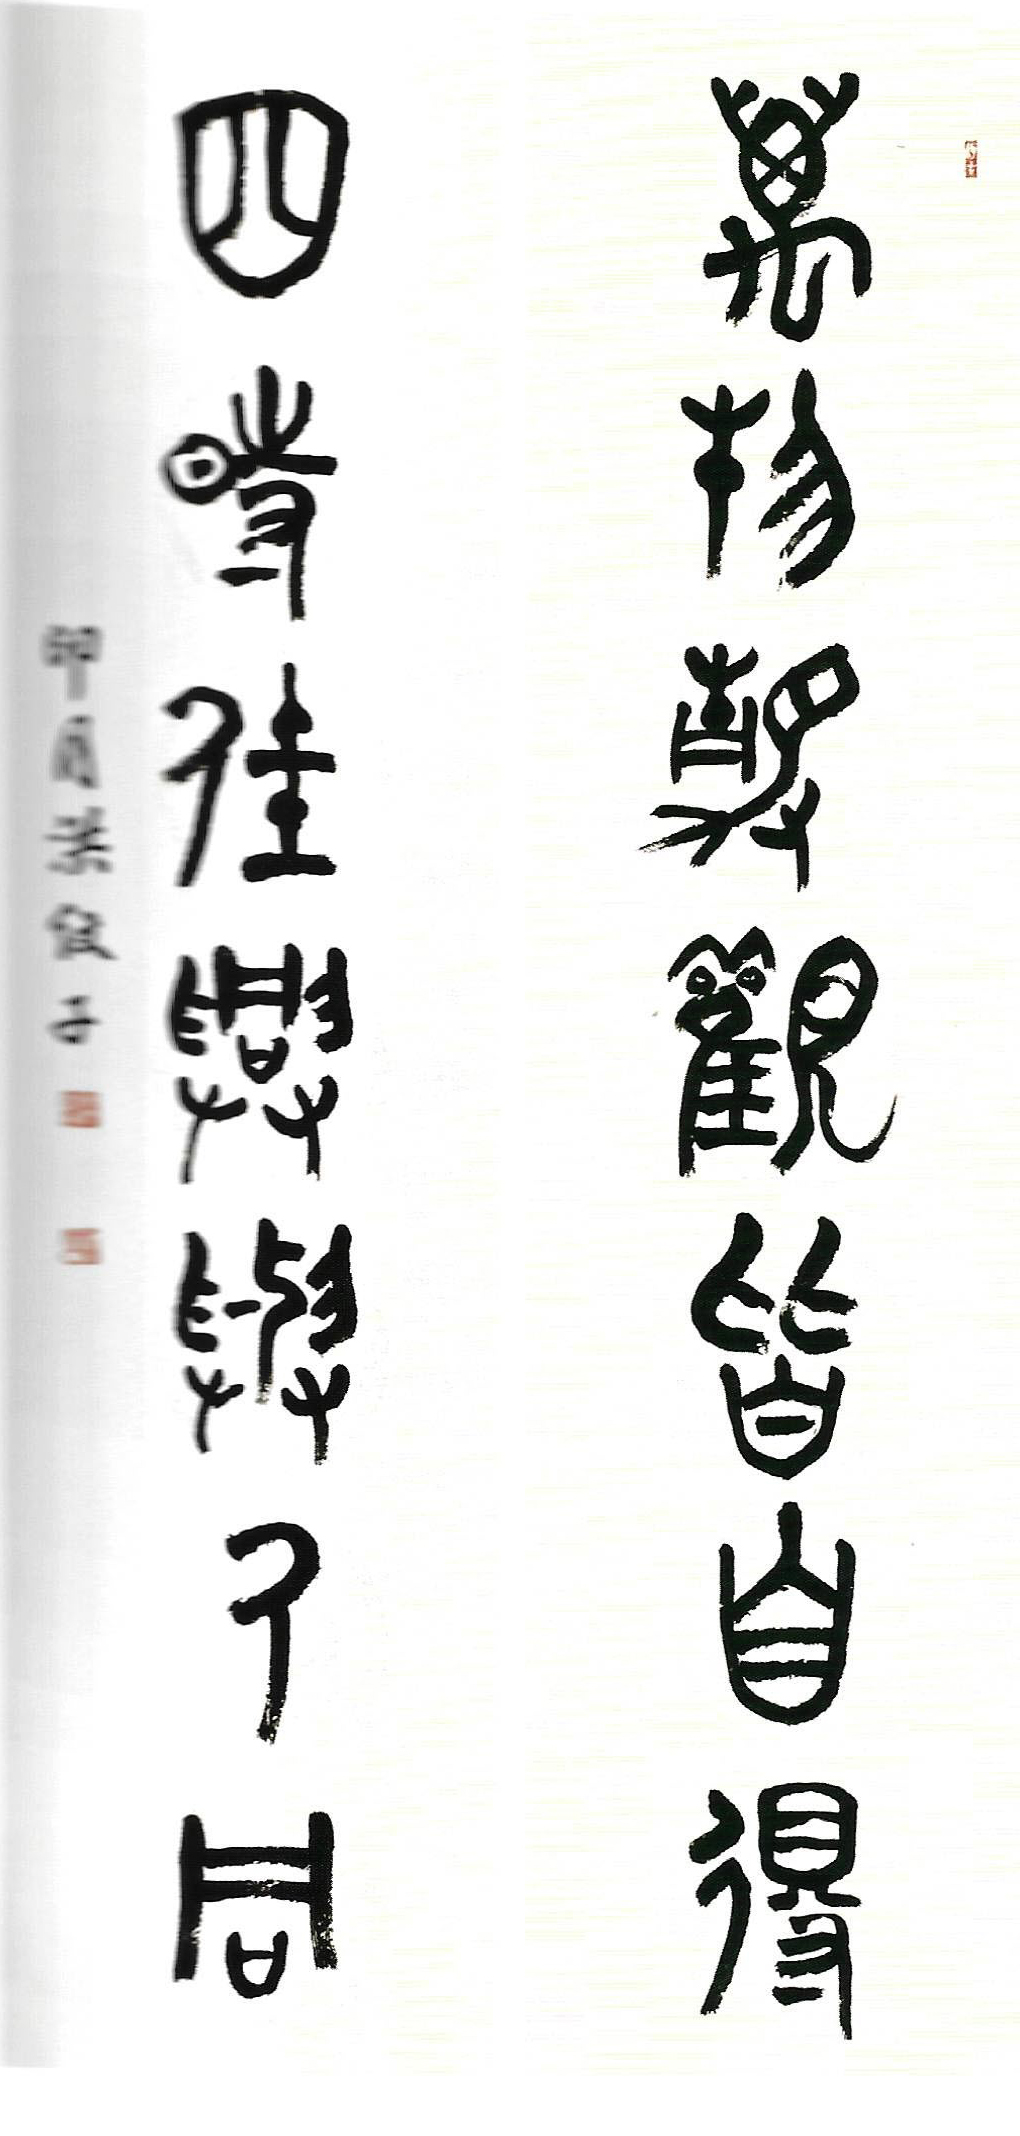 萬物靜觀皆自得
四時佳興與人同
卯月